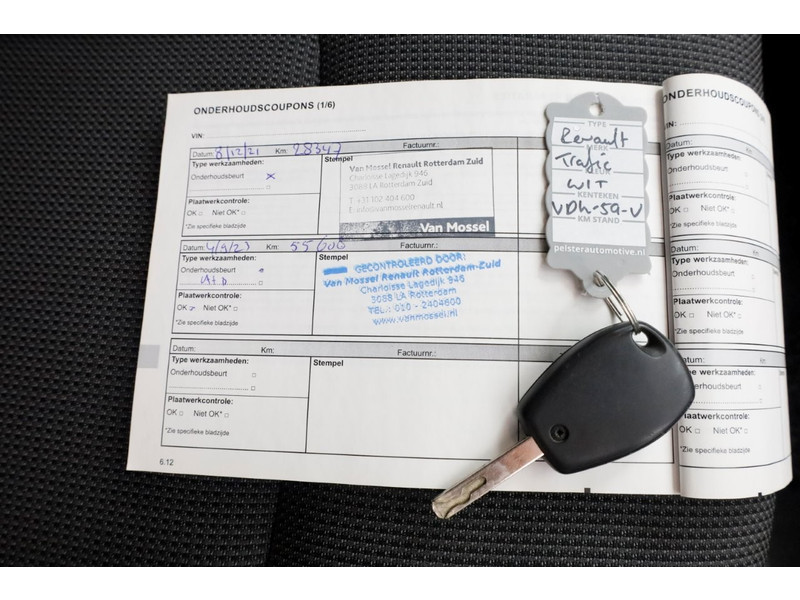 ONDERHOUDSCOUPONS (1/6)
VIN:
Datum: 8/12/21 Km: 28347 Factuurnr.:
Type werkzaamheden:
Onderhoudsbeurt x
Plaatwerkcontrole:
OK □ Niet OK* □
*Zie specifieke bladzijde
Stempel
Van Mossel Renault Rotterdam Zuid
Charloisse Lagedijk 946
3088 LA Rotterdam Zuid
T +31 102 404 600
Van Mossel
Datum: Km: 55600 Factuurnr.:
Type werkzaamheden:
Onderhoudsbeurt
Plaatwerkcontrole:
OK Niet OK* □
*Zie specifieke bladzijde
Stempel
GECONTROLEERD DOOR:
Van Mossel Renault Rotterdam-Zuid
Charloisse Lagedijk 946
3088 LA Rotterdam
TEL.: 010 - 2404600
www.vanmossel.nl
Datum: Km: Factuurnr.:
Type werkzaamheden:
Onderhoudsbeurt □
□
Plaatwerkcontrole:
OK □ Niet OK* □
*Zie specifieke bladzijde
Stempel
6.12
TYPE
Renault
MERK
Trafic
KLEUR
WIT
KENTEKEN
VDh-59-V
KM STAND
peisterautomotive.nl
ONDERHOUDSCOUPONS
VIN:
Datum:
Type werkzaamheden:
Onderhoudsbeurt
Plaatwerkcontrole:
OK □ Niet OK* □
*Zie specifieke bladzijde
Datum:
Type werkzaamheden:
Onderhoudsbeurt
Plaatwerkcontrole:
OK □ Niet OK* □
*Zie specifieke bladzijde
Datum: Km:
Type werkzaamheden:
Onderhoudsbeurt
Plaatwerkcontrole:
OK □ Niet OK* □
*Zie specifieke bladzijde